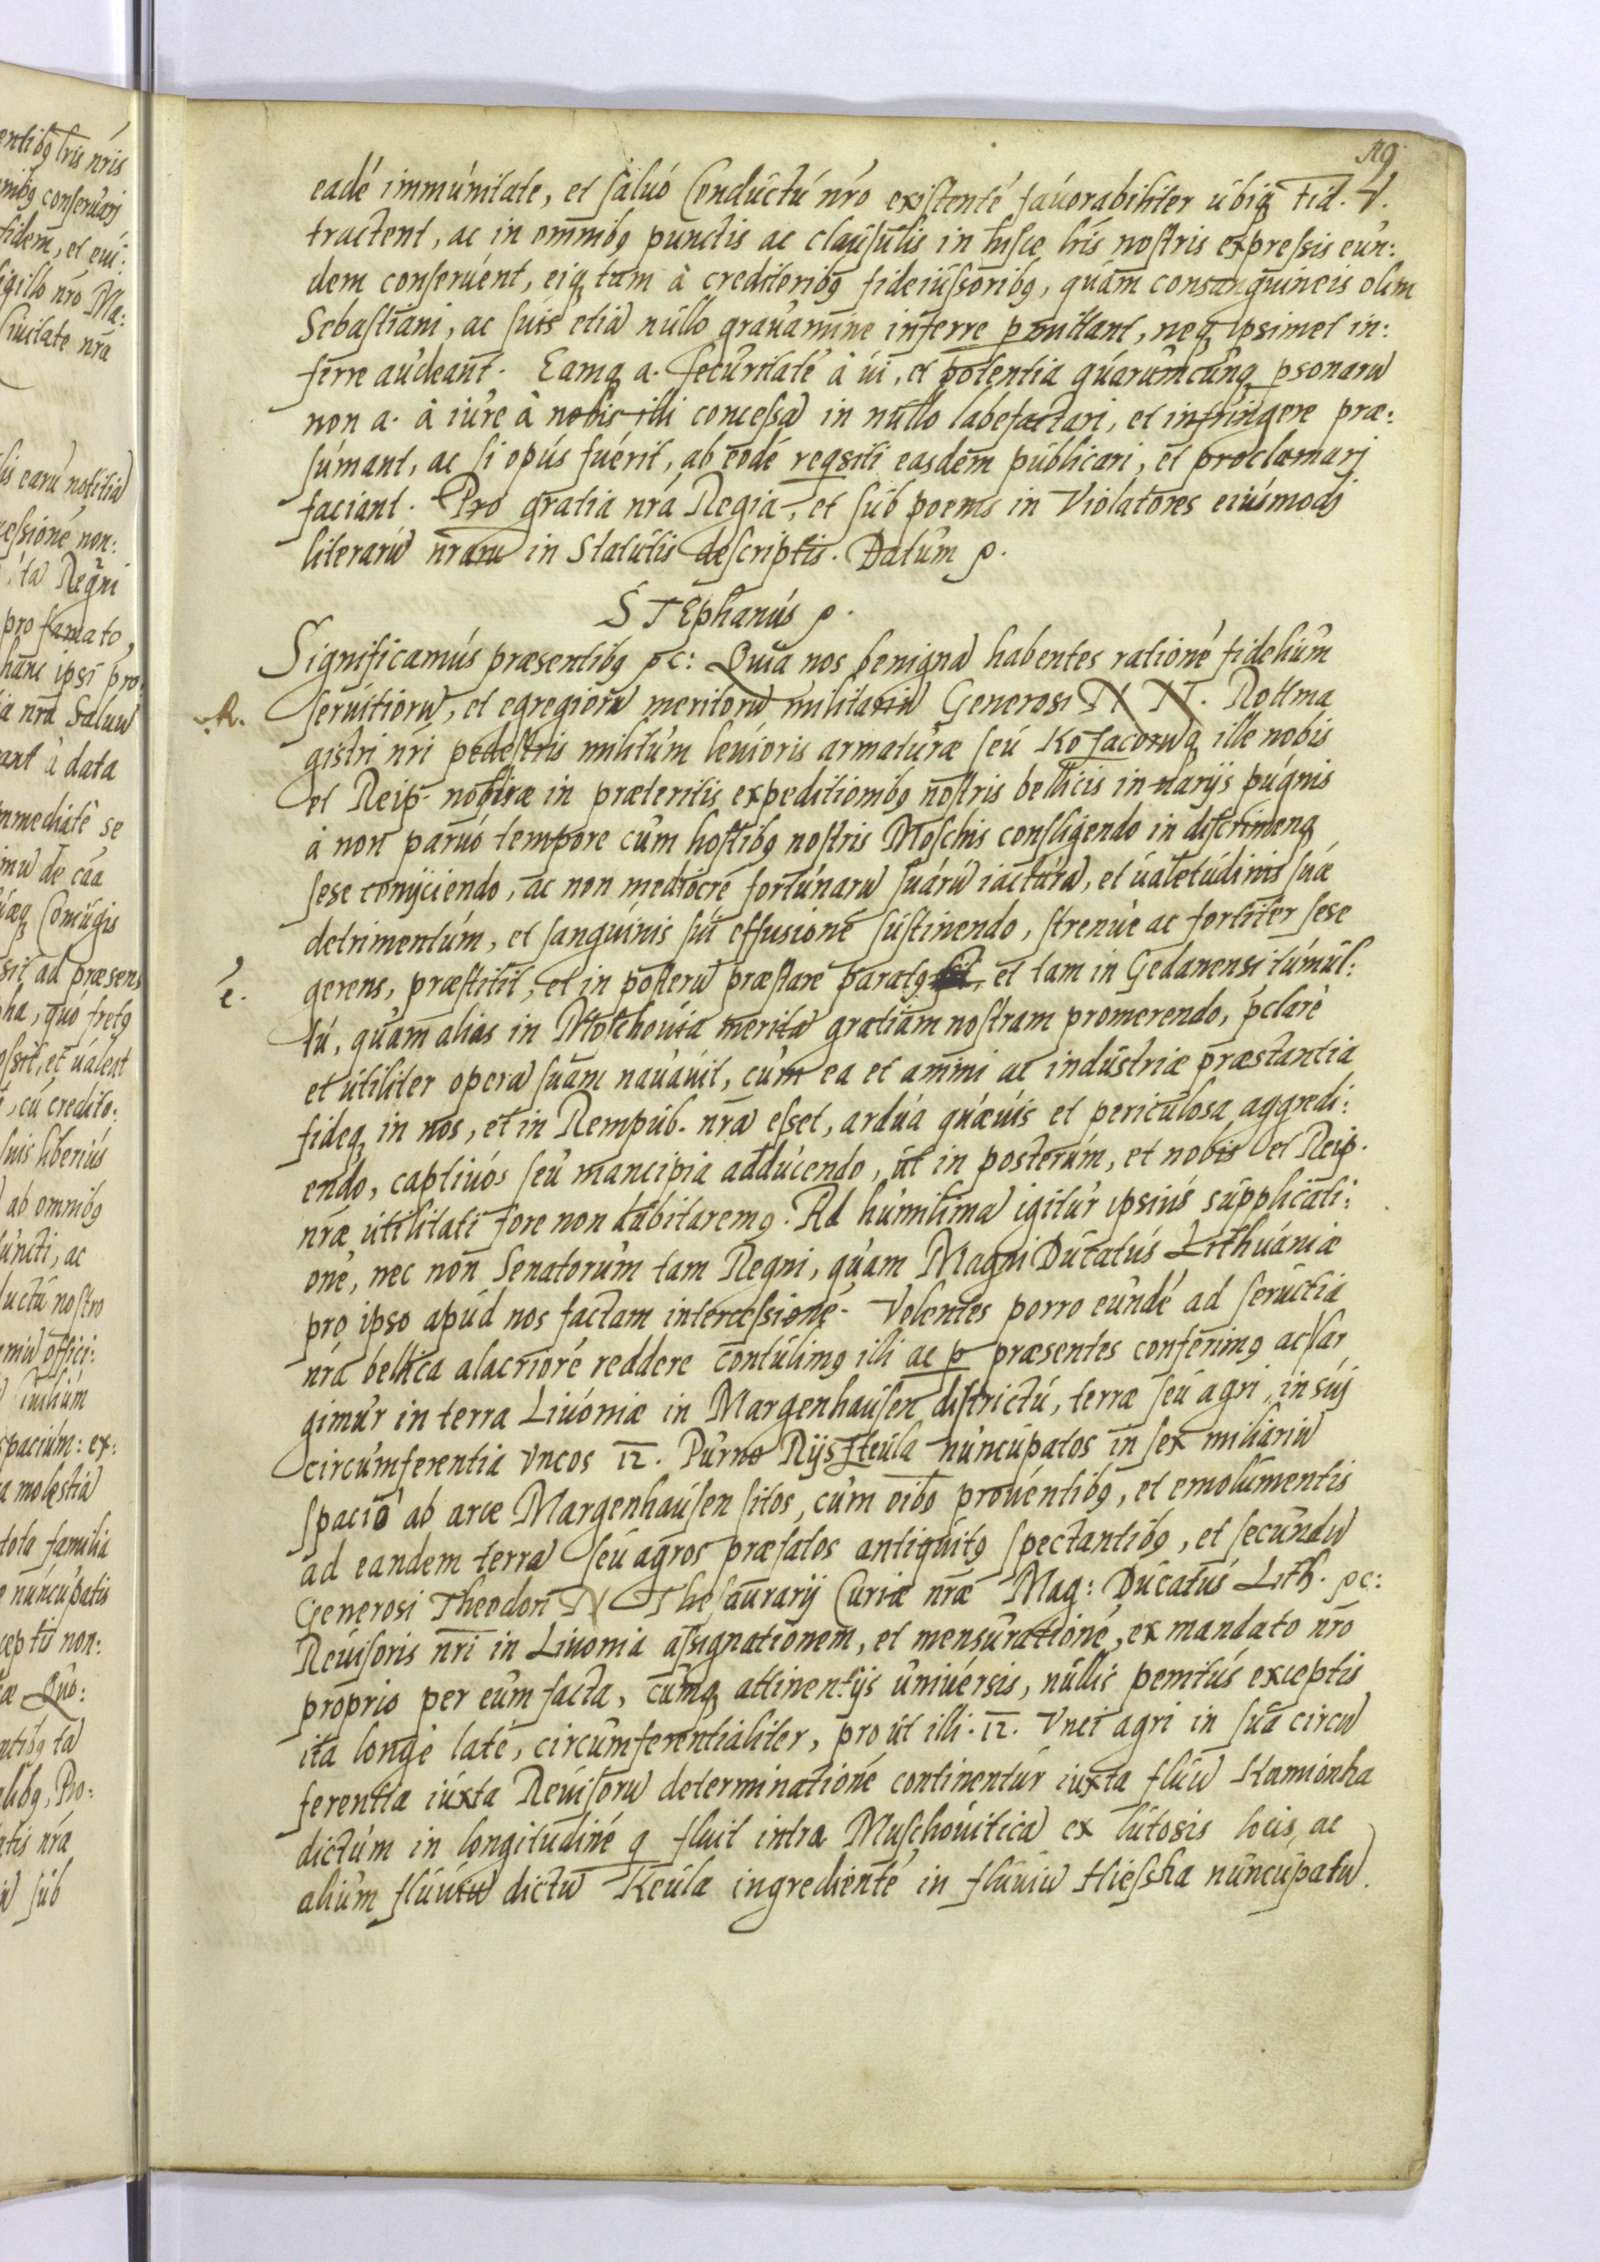 119
eadé immúnitate, et saluó Conductú nŕo existenté fauorabiliter ubiq fid. V.
tractent, ac in omnibg punctis ac clausulis in hisce lŕis nostris expressis eun:
dem conseruent, eiq tam à creditoribg fideiussoribg, quám consanguineis olim
Sebastiani, ac suis etiã nullo grauamine inferre pmittant, neq ipsimet in:
ferre audeant. Eamq a. securitaté à ui, et potentia quarumcunq psonarũ
non a. à iure à nobis illi concessã in nullo labefactari, et infringere præ:
sumant, ac si opus fuerit, ab eodé reqsiti easdem publicari, et proclamarj
faciant. Pro gratia nŕa Regia, et sub poenis in Violatores eiusmodj
literarũ nŕarũ in Statutis descriptis. Datum ρ.
STEphanus ρ.
Significamus præsentibg ρc: Quia nos benignã habentes rationé fidelium
seruitiorũ, et egregiorũ meritorũ militariũ Generosi N N. Rottma
gistri nŕi pedestris militum leuioris armaturæ seu Kosacorũ q ille nobis
et Reip. nostræ in præteritis expeditionibg nostris bellicis in uarijs pugnis
à non paruo tempore cum hostibg nostris Moschis confligendo in discrimenq
sese conijciendo, ac non mediocré fortunarũ suarũ iacturã, et ualetudinis suæ
detrimentum, et sanguinis sui effusioné sustinendo, strenuè ac fortiter sese
gerens, præstitit, et in posterũ præstare paratg et tam in Gedanensi tumul:
é.
tu, quam alias in Moschouia merità gratiam nostram promerendo, pclarè
et utiliter operã suam nauauit, cum ea et animi ac industriæ præstantia
fideq in nos, et in Rempub. nŕã esset, ardua quæuis et periculosa aggredi:
endo, captiuos seu mancipia adducendo, ut in posterum, et nobis et Reip.
nŕæ utilitati fore non dubitaremg. Ad humilimã igitur ipsius supplicati:
oné, nec non Senatorum tam Regni, quam Magni Ducatus Lithuaniæ
pro ipso apud nos factam intercessioné. Volentes porro eundé ad seruitia
nŕa bellica alacrioré reddere contulimg illi ac p præsentes conferimg ac lar
gimur in terra Liuoniæ in Margenhausen districtu, terræ seu agri in suj
circumferentia vncos 12. Purno nuncupatos in sex miliariũ
spacio ab arce Margenhausen sitos, cum oibg prouentibg, et emolumentis
ad eandem terrã seu agros præfatos antiquitg spectantibg, et secundũ
Generosi Theodori N Thesaurarij Curiæ nŕæ Mag: Ducatus Lith. ρc:
Reuisoris nŕi in Liuonia assignationem, et mensurationé, ex mandato nŕo
proprio per eum facta, cumq attinentijs uniuersis, nullis penitus exceptis
ita longè latè, circumferentialiter, pro ut illi. 12. Vnci agri in sua circũ
ferentia iuxta Reuisorũ determinationé continentur iuxta fluũ Kamionka
dictum in longitudiné q fluit intra Muschouiticã ex lutosis locis, ac
alium fluuiũ dictũ Keula ingredienté in fluuiũ nuncupatũ.